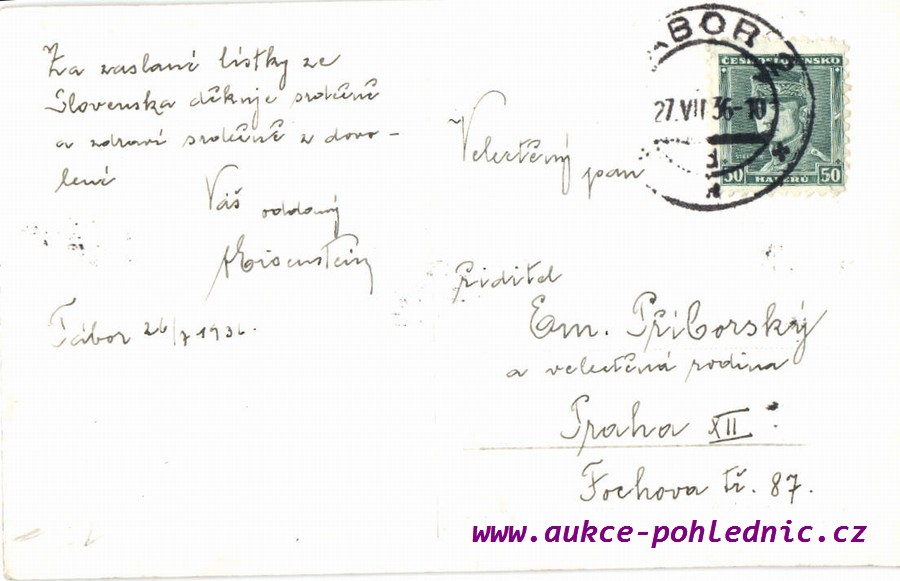 Za zaslané lístky ze
Slovenska děkuje srdečně
a zdraví srdečně z dovo-
lené
Váš oddaný
AEisenstein
Tábor 26/7 1936.
ÁBOR 2
27.VII 36-10
ČESKOSLOVENSKO
50 HALÉŘŮ 50
Velectěný
pan
řiditel
Em. Příborský
a velectěná rodina
Praha XII.
Fochova tř. 87.
www.aukce-pohlednic.cz